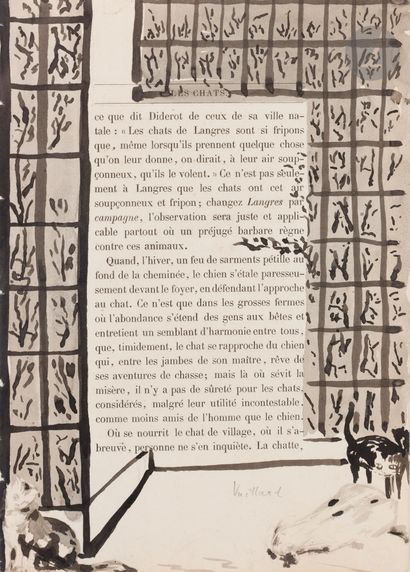 LES CHATS
ce que dit Diderot de ceux de sa ville na-
tale : « Les chats de Langres sont si fripons
que, même lorsqu'ils prennent quelque chose
qu'on leur donne, on dirait, à leur air soup-
çonneux, qu'ils le volent. » Ce n'est pas seule-
ment à Langres que les chats ont cet air
soupçonneux et fripon ; changez Langres par
campagne, l'observation sera juste et appli-
cable partout où un préjugé barbare règne
contre ces animaux.
Quand, l'hiver, un feu de sarments pétille au
fond de la cheminée, le chien s'étale paresseu-
sement devant le foyer, en défendant l'approche
au chat. Ce n'est que dans les grosses fermes
où l'abondance s'étend des gens aux bêtes et
entretient un semblant d'harmonie entre tous,
que, timidement, le chat se rapproche du chien
qui, entre les jambes de son maître, rêve de
ses aventures de chasse; mais là où sévit la
misère, il n'y a pas de sûreté pour les chats,
considérés, malgré leur utilité incontestable,
comme moins amis de l'homme que le chien.
Où se nourrit le chat de village, où il s'a-
breuve, personne ne s'en inquiète. La chatte,
Vuillard